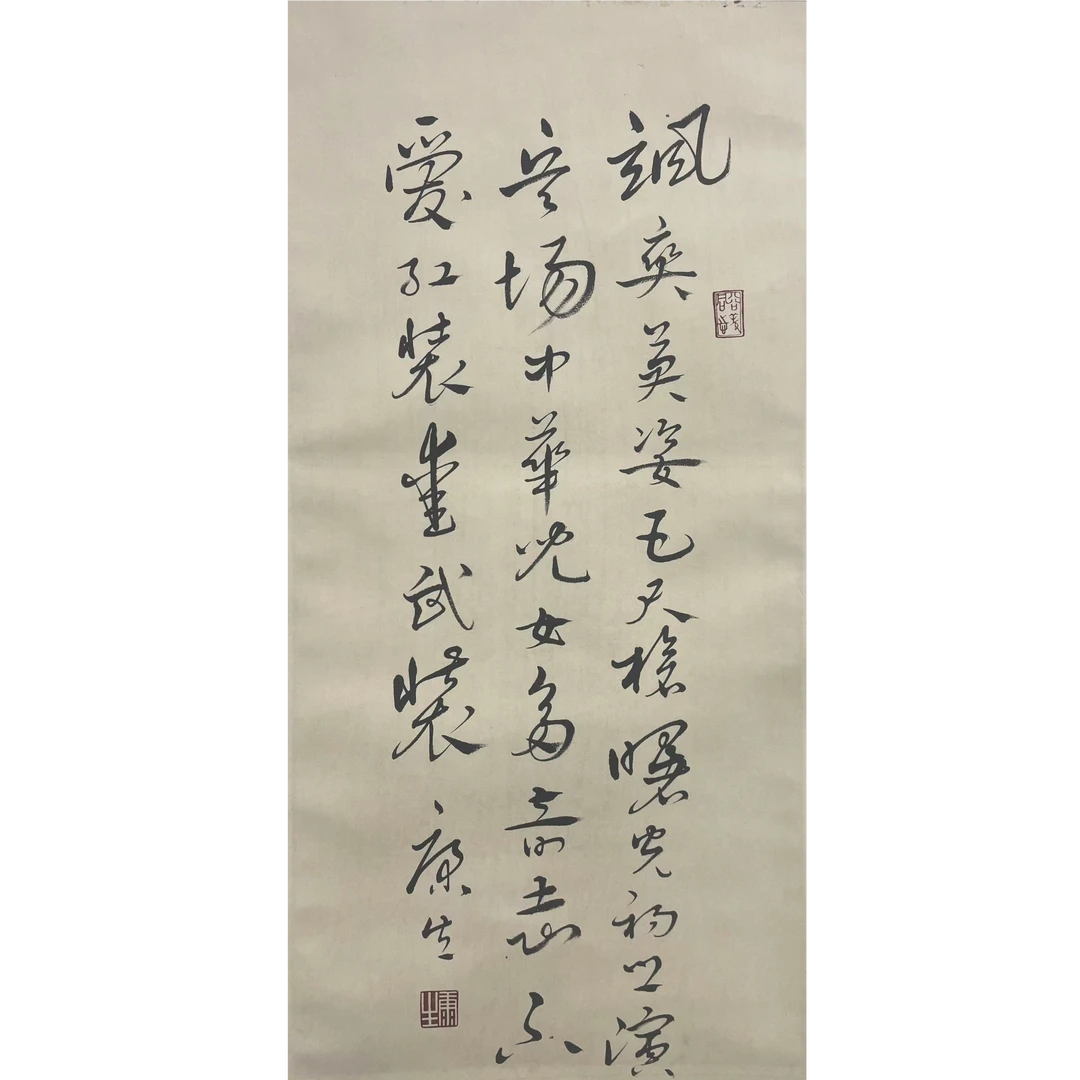 颯爽英姿五尺槍曙光初照演
兵場中華兒女多奇志不
愛紅裝愛武裝 康生
康生